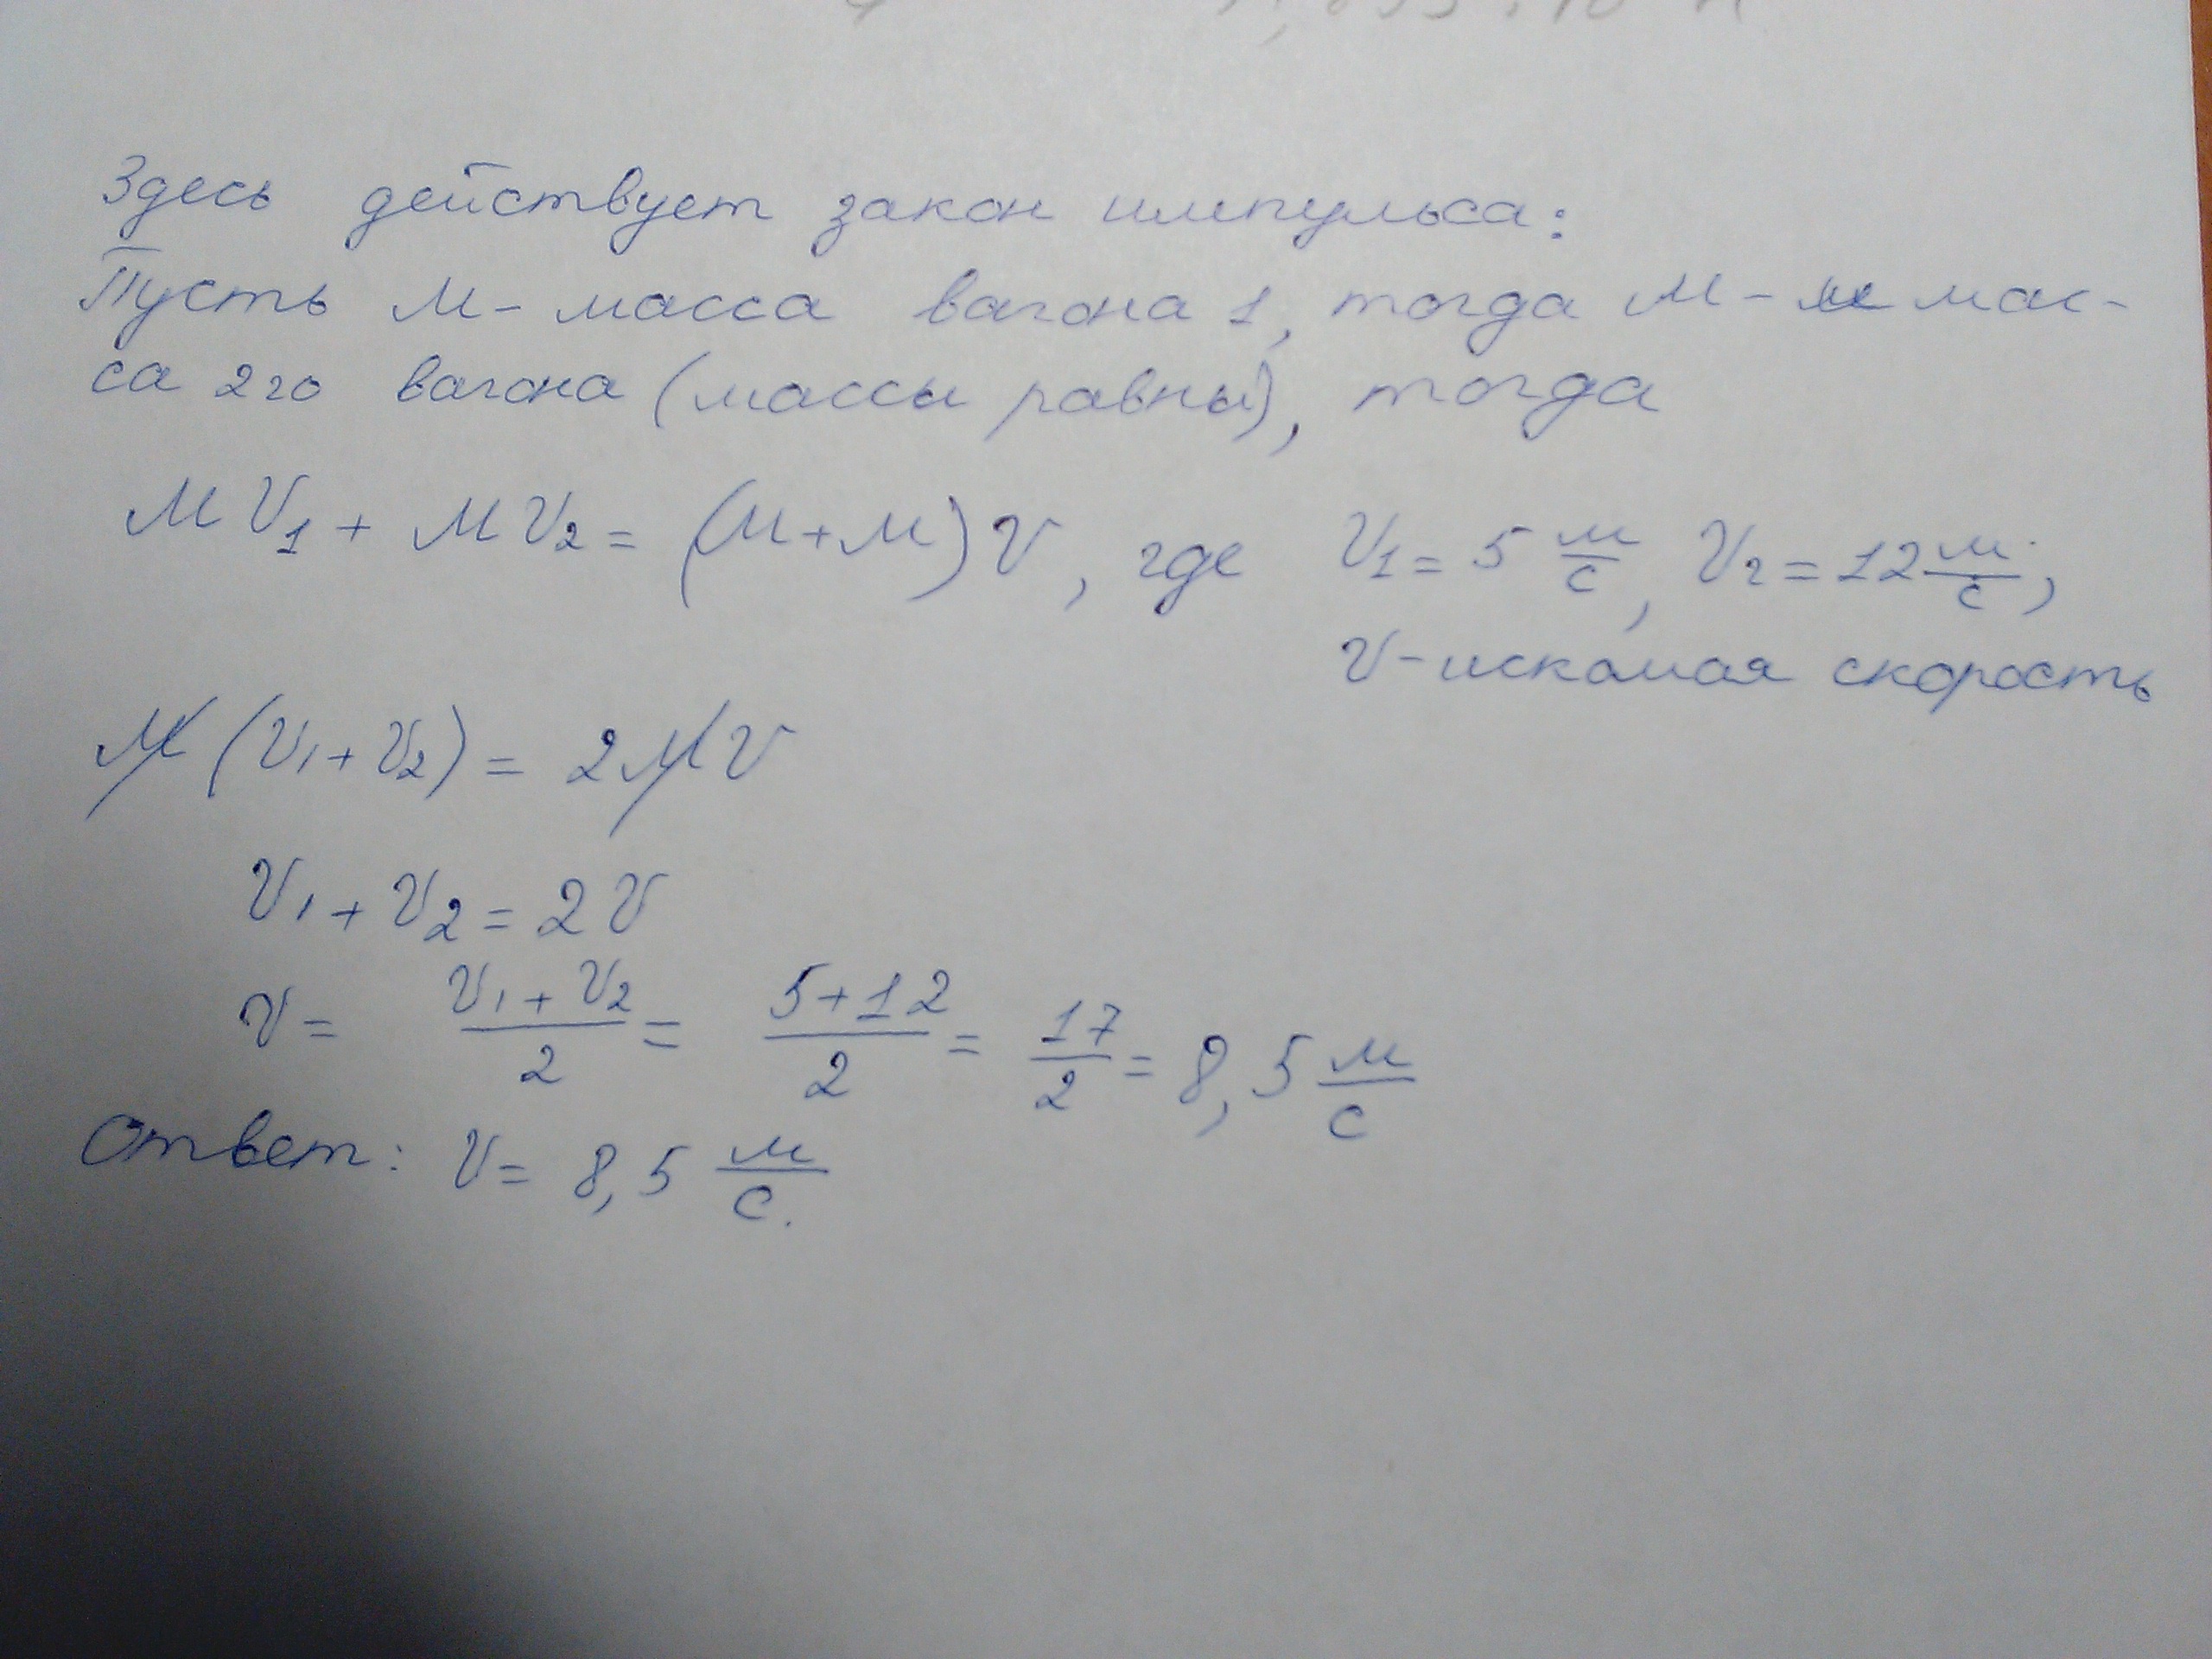 Здесь действует закон импульса:
Пусть M - масса вагона 1, тогда M - мас-
са 2го вагона (массы равны), тогда
MV₁ + MV₂ = (M+M)V, где V₁ = 5 м/с, V₂ = 12 м/с,
V - искомая скорость
M(V₁+V₂) = 2MV
V₁ + V₂ = 2V
V = (V₁+V₂)/2 = (5+12)/2 = 17/2 = 8,5 м/с
Ответ: V = 8,5 м/с.